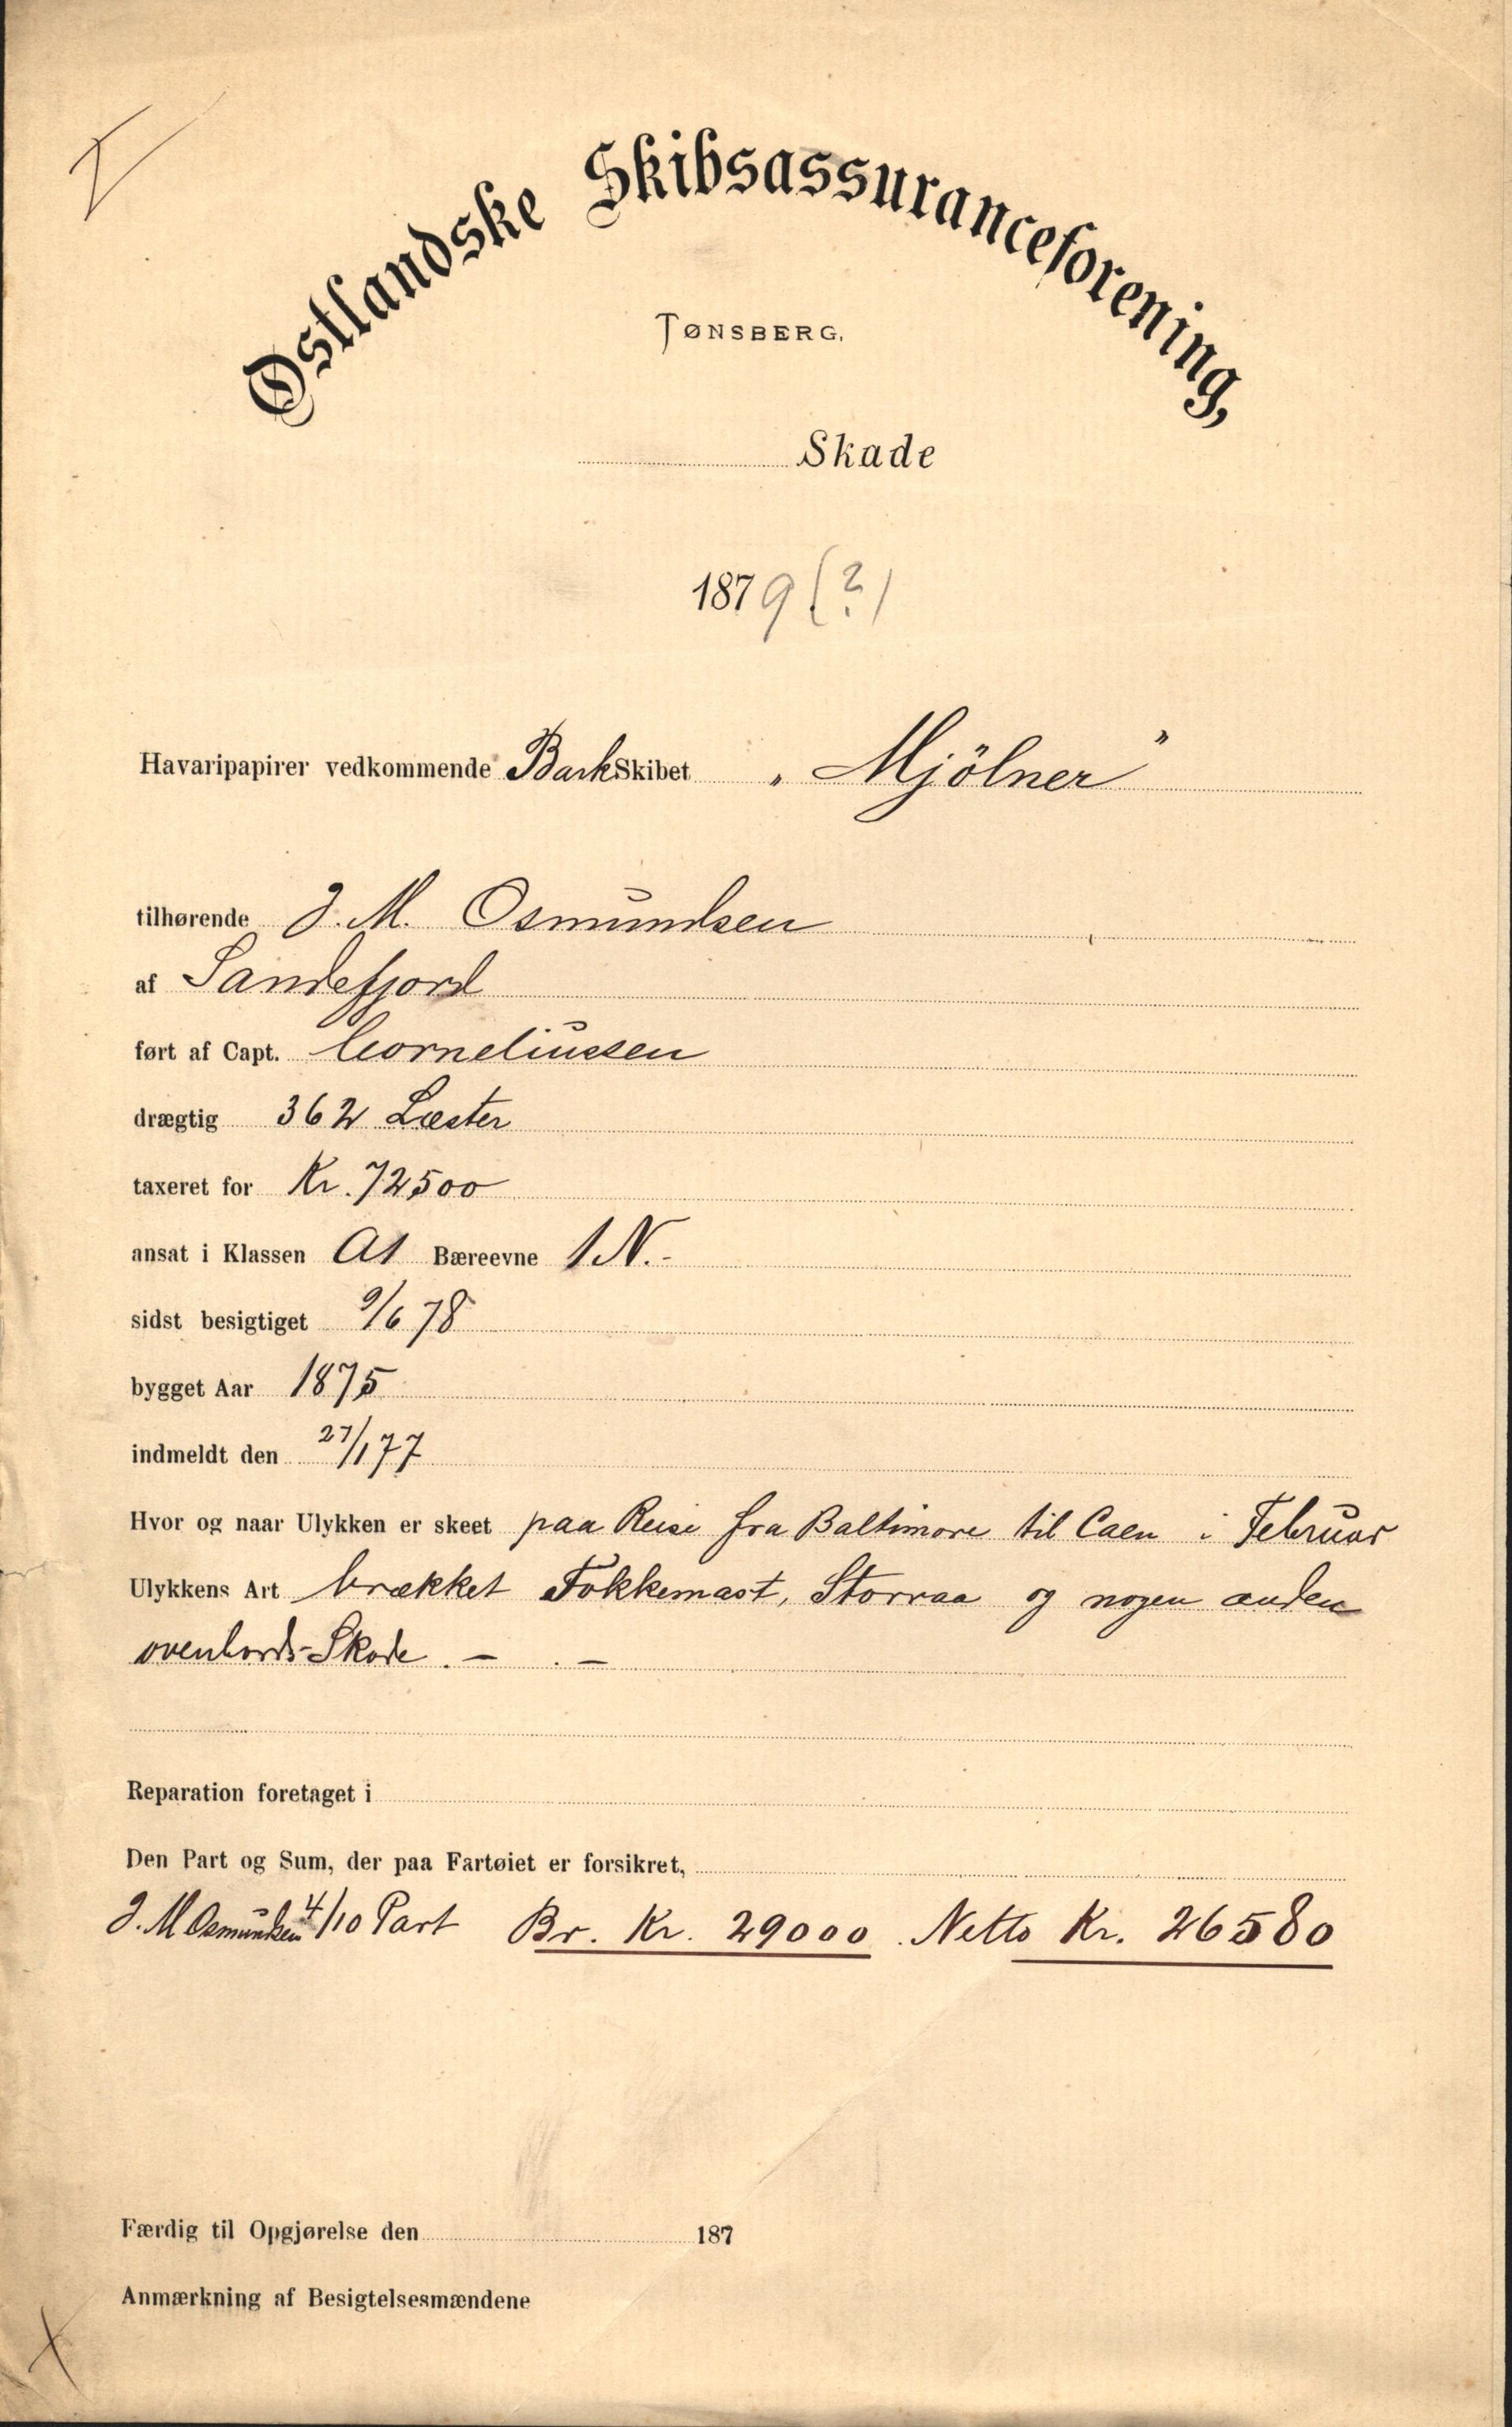 Østlandske Skibsassuranceforening,
TØNSBERG.
Skade
1879 (?)
Havaripapirer vedkommende Bark Skibet „Mjölner”
tilhørende J. M. Osmundsen
af Sandefjord
ført af Capt. Corneliussen
drægtig 362 Læster
taxeret for Kr. 72500
ansat i Klassen A1 Bæreevne 1 N.-
sidst besigtiget 9/6 78
bygget Aar 1875
indmeldt den 27/1 77
Hvor og naar Ulykken er skeet paa Reise fra Baltimore til Caen i Februar
Ulykkens Art brækket Fokkemast, Storraa og nogen anden
ovenbords-Skade. — . —
Reparation foretaget i
Den Part og Sum, der paa Fartøiet er forsikret,
J. M. Osmundsen 4/10 Part Br. Kr. 29000. Netto Kr. 26580
Færdig til Opgjørelse den 187
Anmærkning af Besigtelsesmændene